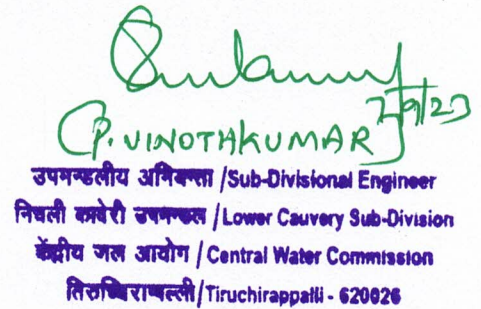 7/9/23
(P. VINOTHKUMAR)
उपमन्डलीय अभियन्ता /Sub-Divisional Engineer
निचली कावेरी उपमन्डल /Lower Cauvery Sub-Division
केंद्रीय जल आयोग /Central Water Commission
तिरुच्चिराप्पल्ली/Tiruchirappalli - 620026